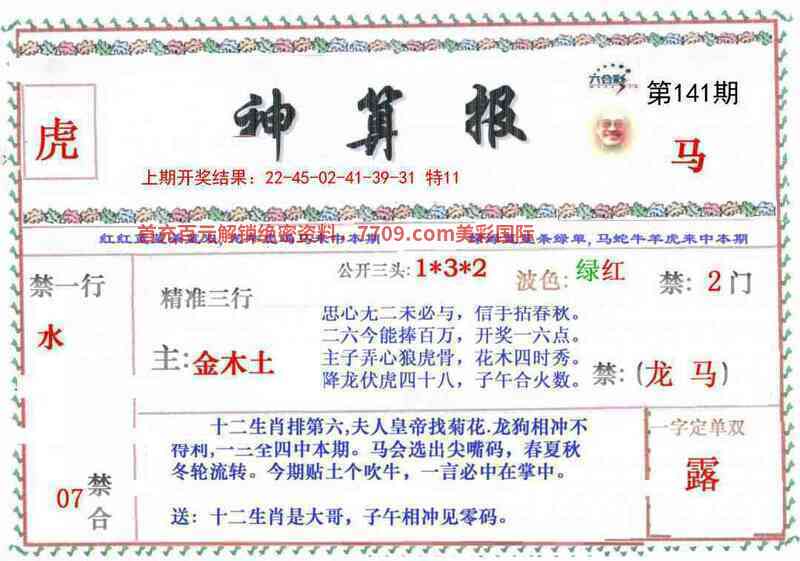 六合彩
第141期
虎
神算报
马
上期开奖结果: 22-45-02-41-39-31 特11
首充百元解锁绝密资料, 7709.com美彩国际
绿单,马蛇牛羊虎来中本期
公开三头: 1*3*2
波色: 绿红
禁: 2门
禁一行
水
精准三行
主: 金木土
思心无二未必与，信手拈春秋。
二六今能捧百万，开奖一六点。
主子弄心狼虎骨，花木四时秀。
降龙伏虎四十八，子午合火数。
禁: (龙 马)
十二生肖排第六,夫人皇帝找菊花.龙狗相冲不
得利,一三全四中本期。马会选出尖嘴码，春夏秋
冬轮流转。今期贴土个吹牛，一言必中在掌中。
一字定单双
露
07
禁合
送: 十二生肖是大哥，子午相冲见零码。